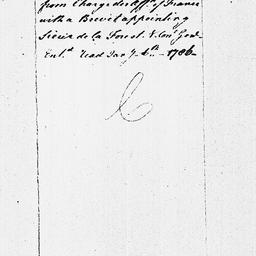 from Charge des Affs. of France
with a Brevet appointing
Sieur de la Forest V. Conl Genl
Ent.d read Jan.y 4th 1786